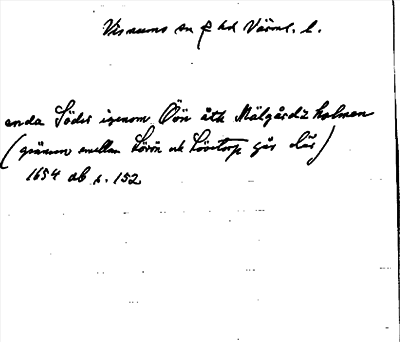 Visnums sn Värml. l.
enda Söder igenom Öön åth Mälgårdz holmen
(gränsen emellan Körön och Löstorp går där)
1654 ab s. 152